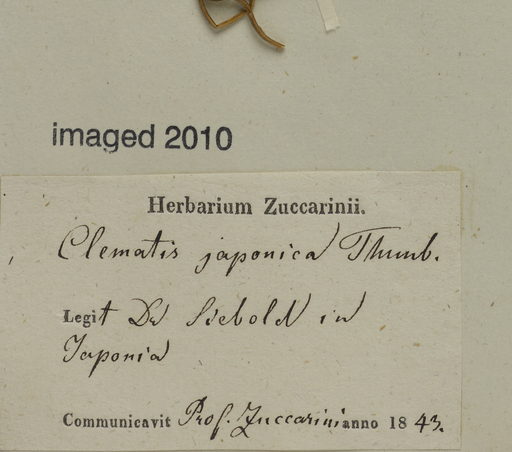 imaged 2010
Herbarium Zuccarinii.
Clematis japonica Thunb.
Legit Dr Siebold in
Japonia
Communicavit Prof. Zuccarini anno 1843.